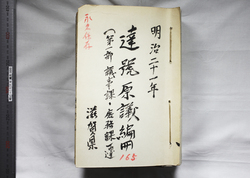 永久保存
明治二十一年
達號原議編冊
(第一部議事課・庶務課ノ達
滋賀県
165